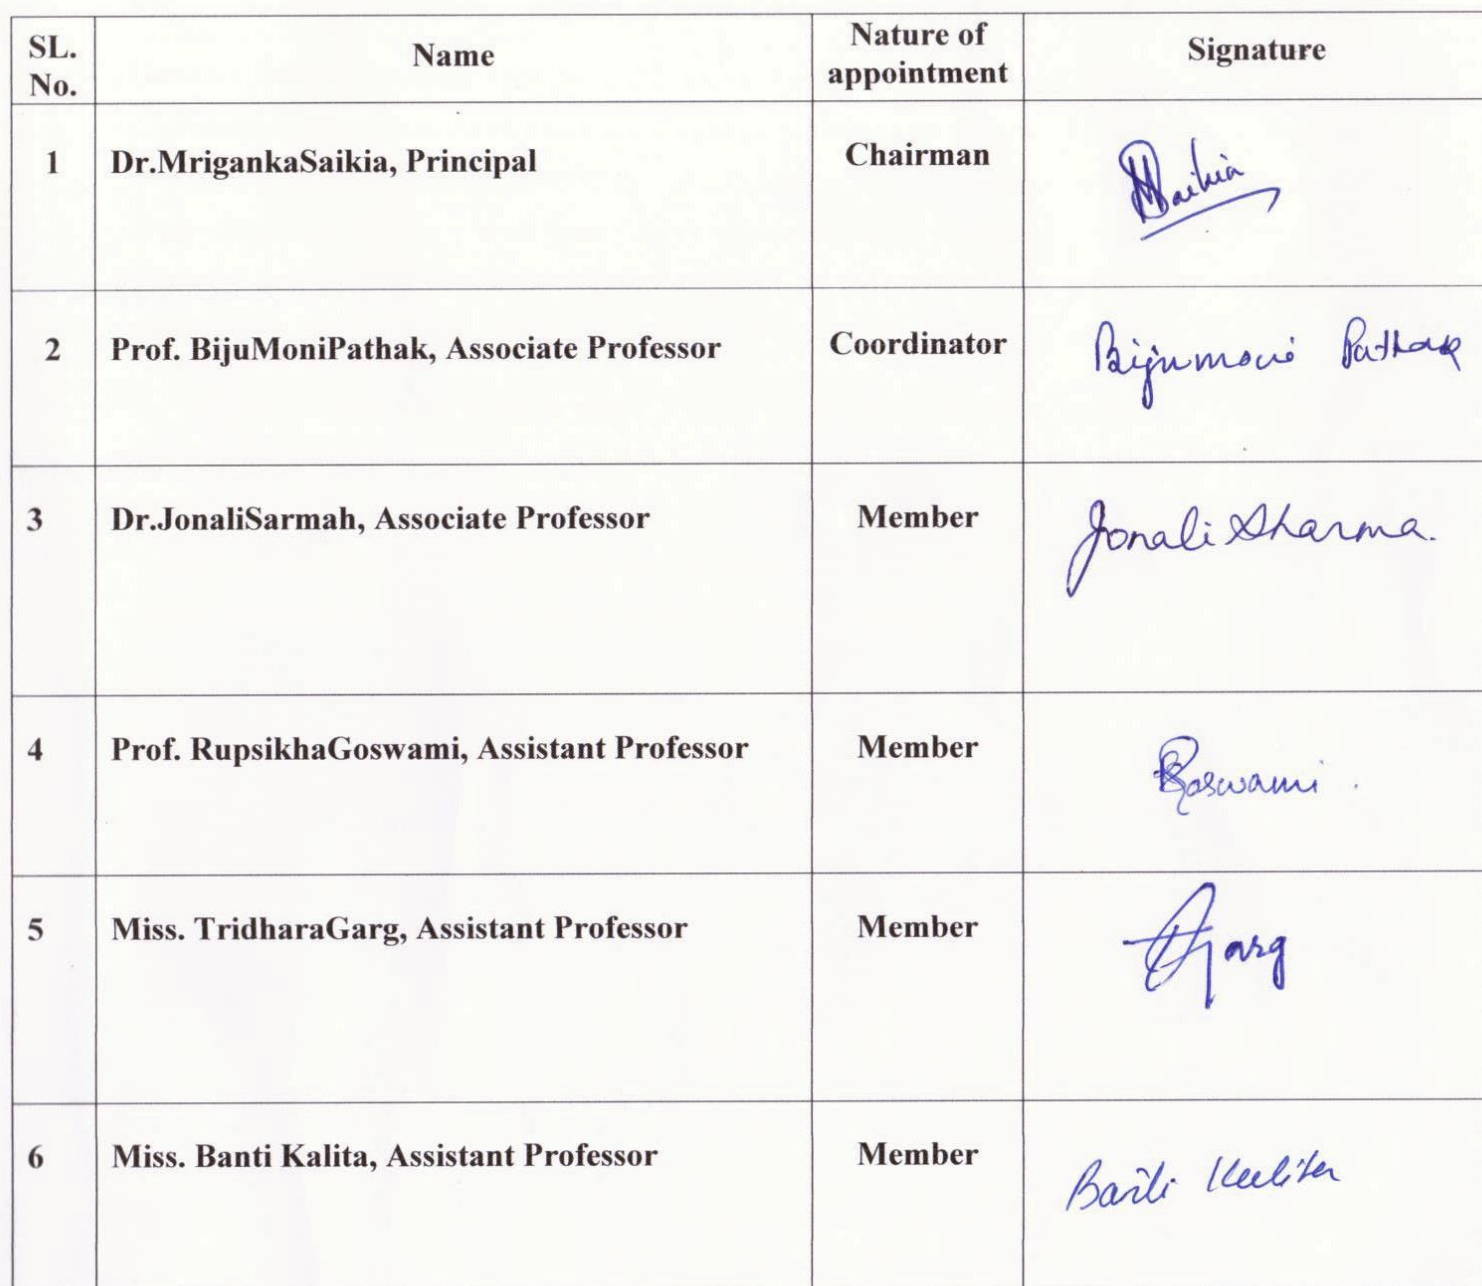 SL. No. Name Nature of appointment Signature
1 Dr.MrigankaSaikia, Principal Chairman MSaikia
2 Prof. BijuMoniPathak, Associate Professor Coordinator Bijumoni Pathak
3 Dr.JonaliSarmah, Associate Professor Member Jonali Sharma.
4 Prof. RupsikhaGoswami, Assistant Professor Member RGoswami.
5 Miss. TridharaGarg, Assistant Professor Member TGarg
6 Miss. Banti Kalita, Assistant Professor Member Banti Kalita